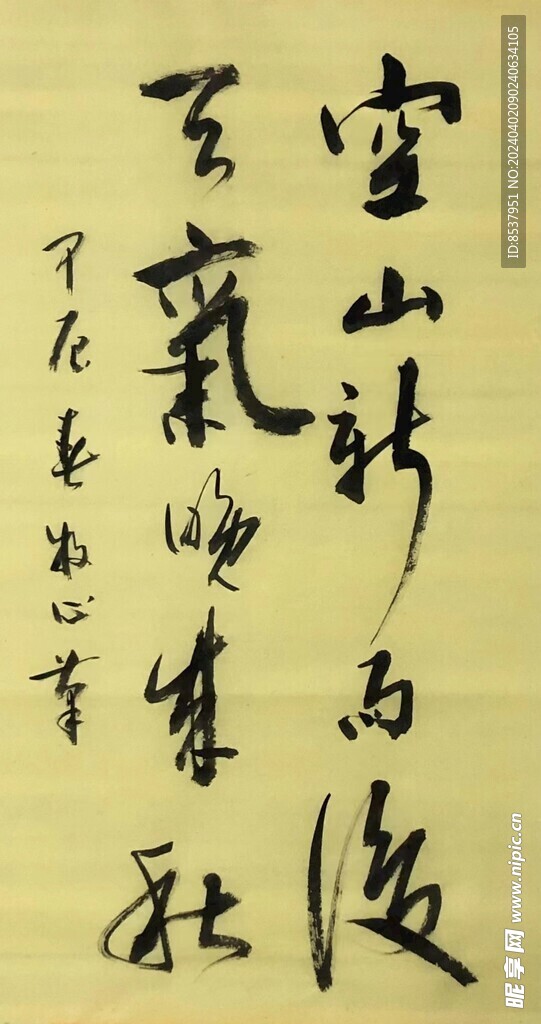 空山新雨後
天氣晚來秋
甲辰春牧心筆
ID:8537951 NO:20240402090240634105
昵享网 www.nipic.cn